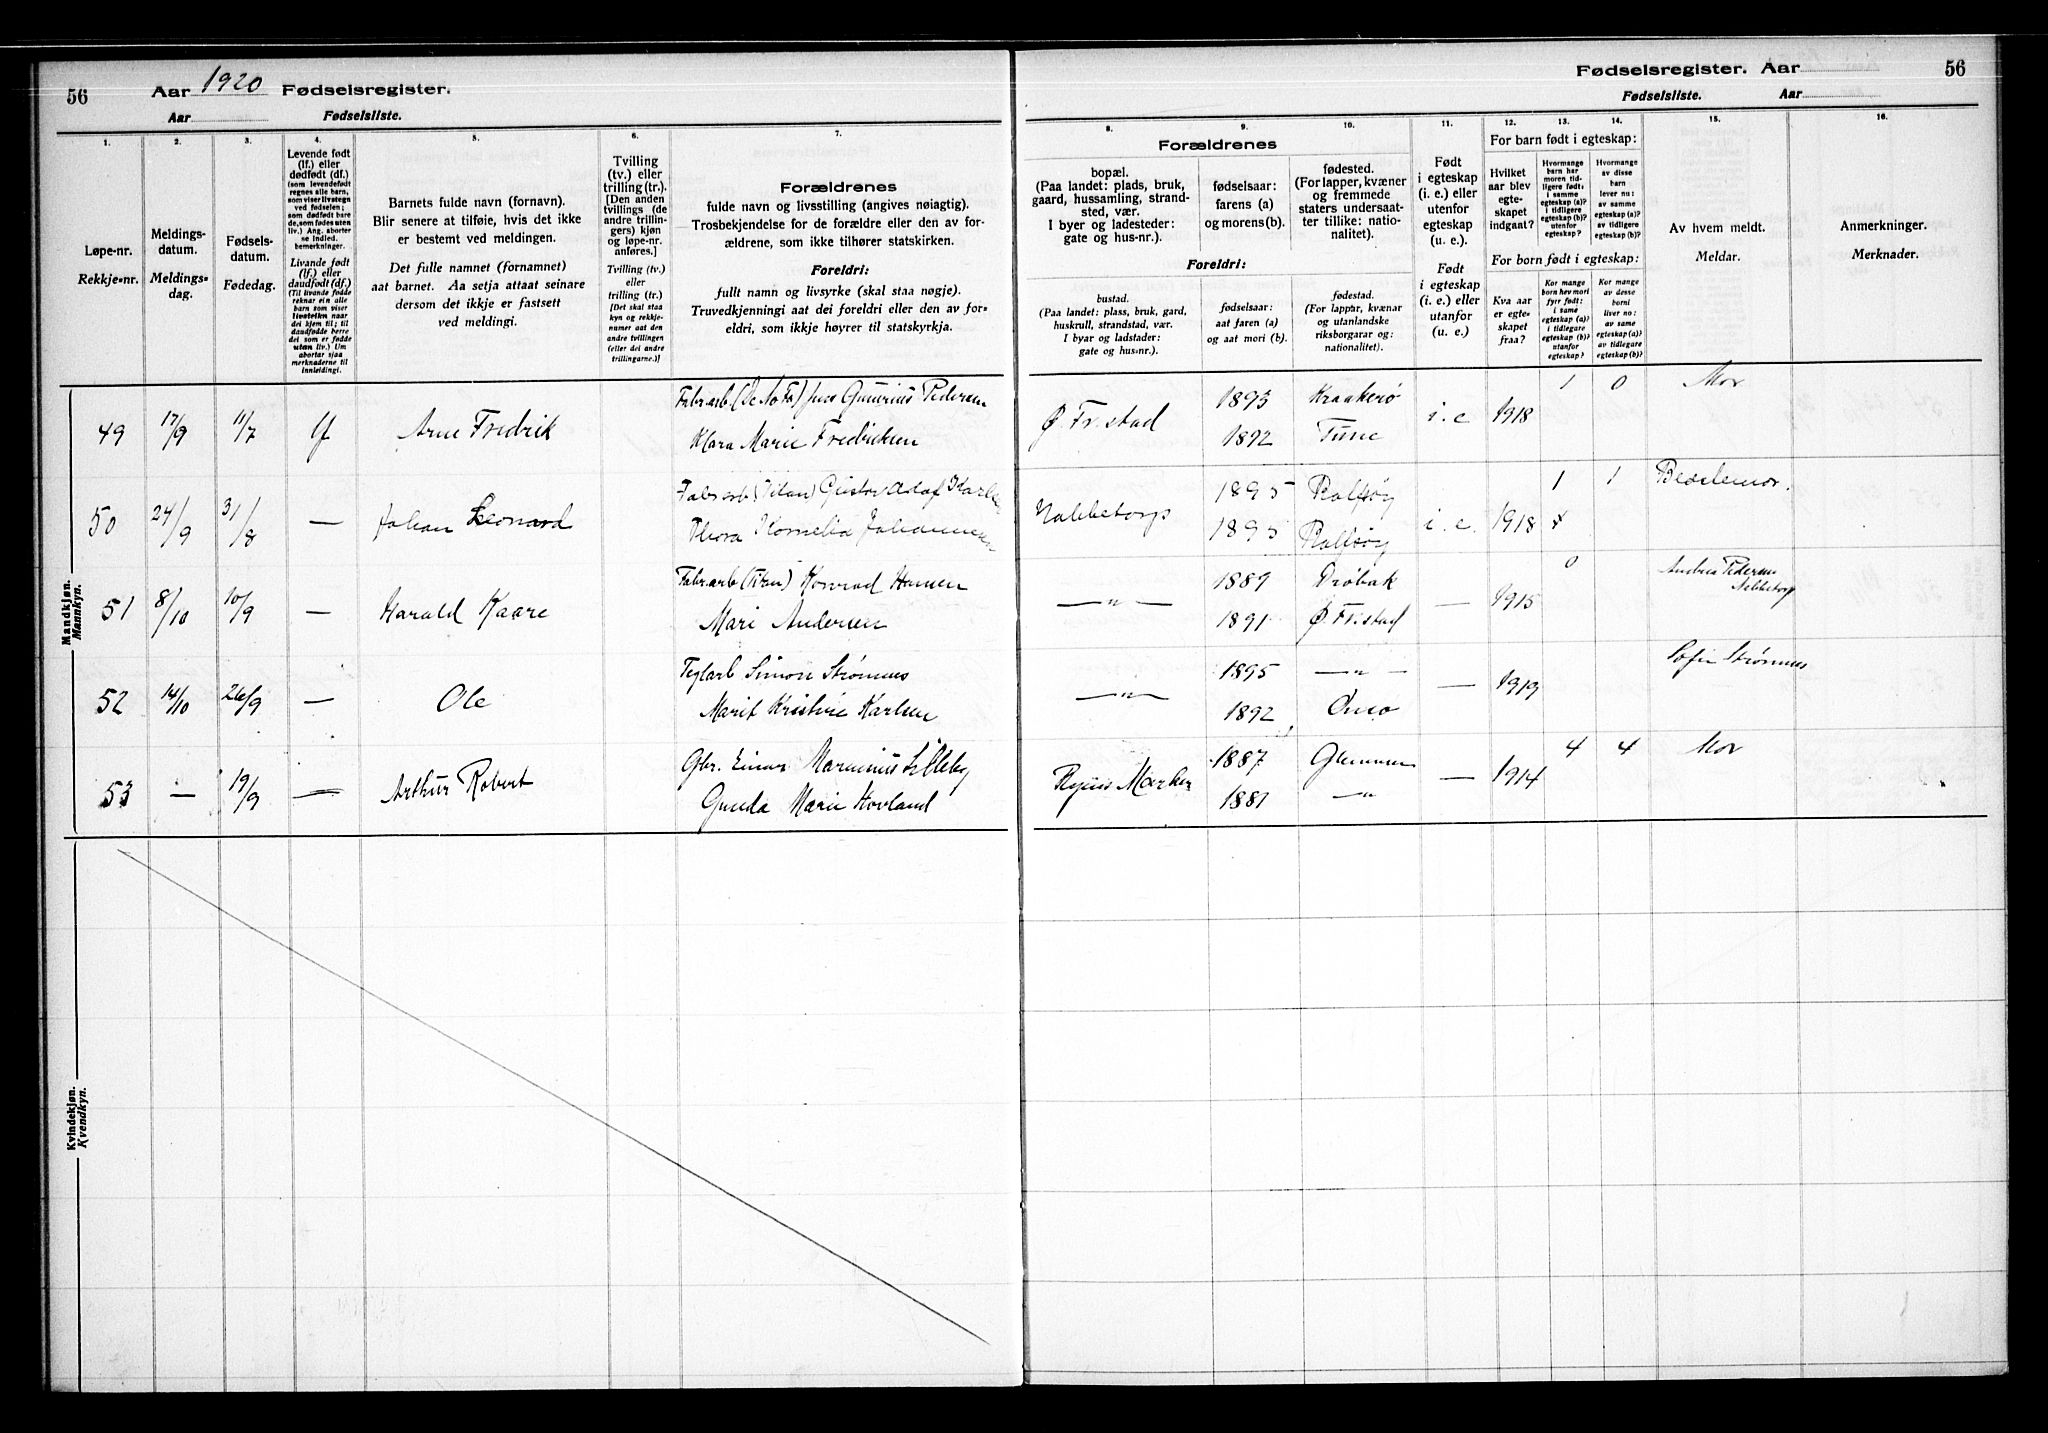 56
Aar 1920 Fødselsregister.
Aar Fødselsliste.
1.
2.
3.
4.
5.
6.
7.
Løpe-nr.
Rekkje-nr.
Meldings-
datum.
Meldings-
dag.
Fødsels-
datum.
Fødedag.
Levende født
(lf.) eller
dødfødt (df.)
(som levendefødt
regnes alle barn,
som viser livstegn
ved fødselen;
som dødfødt bare
de, som fødes uten
liv.) Ang. aborter
se indled.
bemerkninger.
Livande født
(lf.) eller
daudfødt (df.)
(Til livande fødde
reknar ein alle
born som viser
livsteikn naar
dei kjem til; til
daudfødde berre
dei som er fødde
utan liv.) Um
abortar sjaa
merknaderne til
innleidingi.
Barnets fulde navn (fornavn).
Blir senere at tilføie, hvis det ikke
er bestemt ved meldingen.
Det fulle namnet (fornamnet)
aat barnet. Aa setja attaat seinare
dersom det ikkje er fastsett
ved meldingi.
Tvilling
(tv.) eller
trilling (tr.).
[Den anden
tvillings (de
andre trillin-
gers) kjøn
og løpe-nr.
anføres.]
Tvilling (tv.)
eller
trilling (tr.)
[Det skal staa
kyn og rekkje-
numer aat den
andre tvillingen
(eller dei andre
trillingarne.)]
Forældrenes
fulde navn og livsstilling (angives nøiagtig).
Trosbekjendelse for de forældre eller den av for-
ældrene, som ikke tilhører statskirken.
Foreldri:
fullt namn og livsyrke (skal staa nøgje).
Truvedkjenningi aat dei foreldri eller den av for-
eldri, som ikkje høyrer til statskyrkja.
Mandkjøn.
Mannkyn.
49 17/9 11/7 lf Arne Fredrik
Klara Marie Fredriksen
50 24/9 31/8 — Johan Leonard
Fabrarb (Titan) Gustav Adolf Karlsen
Thora Kornelia Johannesen
51 8/10 10/9 — Harald Kaare
Fabr.arb (Titan) Konrad Hansen
Mari Andersen
52 14/10 26/9 — Ole
Teglarb Simon Strømnes
Marit Kristine Karlsen
53 — 19/9 — Arthur Robert
Gbr. Einar Marinius Lilleby
Gunda Marie Hovland
Kvindekjøn.
Kvendkyn.
Fødselsregister. Aar 56
Fødselsliste. Aar
8.
9.
10.
11.
12.
13.
14.
15.
16.
Forældrenes
bopæl.
(Paa landet: plads, bruk,
gaard, hussamling, strand-
sted, vær.
I byer og ladesteder:
gate og hus-nr.).
fødselsaar:
farens (a)
og morens(b).
fødested.
(For lapper, kvæner
og fremmede
staters undersaat-
ter tillike: natio-
nalitet).
Foreldri:
bustad.
(Paa landet: plass, bruk, gard,
huskrull, strandstad, vær.
I byar og ladstader:
gate og hus-nr.).
fødselsaar:
aat faren (a)
og aat mori (b).
fødestad.
(For lappar, kvænar
og utanlandske
riksborgarar og:
nationalitet).
Født
i egteskap
(i. e.) eller
utenfor
egteskap
(u. e.).
Født
i egteskap
(i. e.) eller
utanfor
(u. e.)
For barn født i egteskap:
Hvilket
aar blev
egte-
skapet
indgaat?
Hvormange
barn har
moren tid-
ligere født:
i samme
egteskap (a)?
i tidligere
egteskap (b)?
utenfor
egteskap?
Hvormange
av disse
barn
lever nu:
av samme
egteskap (a)?
av tidligere
egteskap (b)?
For born født i egteskap:
Kva aar
er egte-
skapet
fraa?
Kor mange
born hev mori
fyrr født:
i same
egteskap (a)?
i tidlegare
egteskap (b)?
utanfor
egteskap?
Kor mange
av desse
borni
liver no:
av same
egteskap (a)?
av tidlegare
egteskap (b)?
Av hvem meldt.
Meldar.
Anmerkninger.
Merknader.
Ø. Fr.stad 1893 Kraakerø i. e 1918 1 0 Mor
1892 Tune
Nabbetorp 1895 Rolfsøy i. e. 1918 1 1 Bestemor.
1895 Rolfsøy
—"— 1889 Drøbak — 1915 0 Andrea Pedersen
Nabbetorp
1891 Ø. Fr.stad
—"— 1895 —"— — 1919 Sofie Strømnes
1892 Onsø
1887 Glemmen — 1914 4 4 Mor
1881 —"—